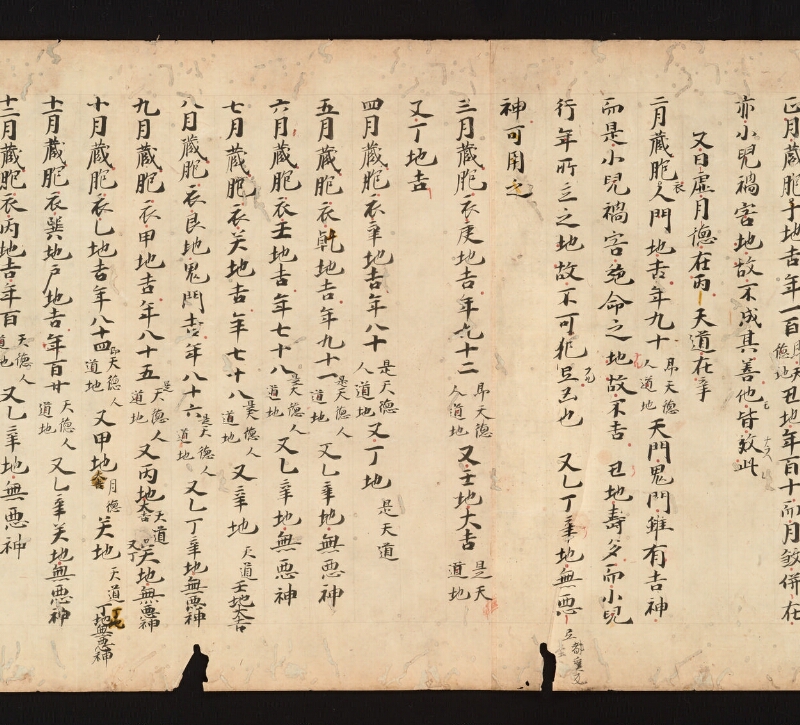 正月蔵胞子地吉年一百 丑地年百十而月煞併在
亦小児禍害地故不成其善他皆效此
又曰虚月徳在丙天道在辛
二月蔵胞衣人門地吉年九十 即天徳人道地 天門鬼門雖有吉神
而是小児禍害絶命之地故不吉 丑地寿多而小児
行年所立之地故不可犯 也 又乙丁辛地無悪
神可用之
三月蔵胞衣庚地吉年九十二 即天徳人道地 又壬地大吉 是天道地
又丁地吉
四月蔵胞衣辛地吉年八十 是天徳人道地 又丁地 是天道
五月蔵胞衣乾地吉年九十一 是天徳人道地 又乙辛地無悪神
六月蔵胞衣壬地吉年七十八 是天徳人道地 又乙辛地無悪神
七月蔵胞衣癸地吉年七十八 是天徳人道地 又辛地 天道 壬地大吉
八月蔵胞衣艮地鬼門吉年八十六 是天徳人道地 又乙丁辛地無悪神
九月蔵胞衣甲地吉年八十五 是天徳人道地 又丙地大吉 天道 又丁癸地無悪神
十月蔵胞衣乙地吉年八十四 即天徳人道地 又甲地大吉 月徳 癸地 天道 丁地無悪神
十一月蔵胞衣巽地戸地吉年百廿 天徳人道地 又乙辛癸地無悪神
十二月蔵胞衣丙地吉年百 天徳人道地 又乙辛地無悪神